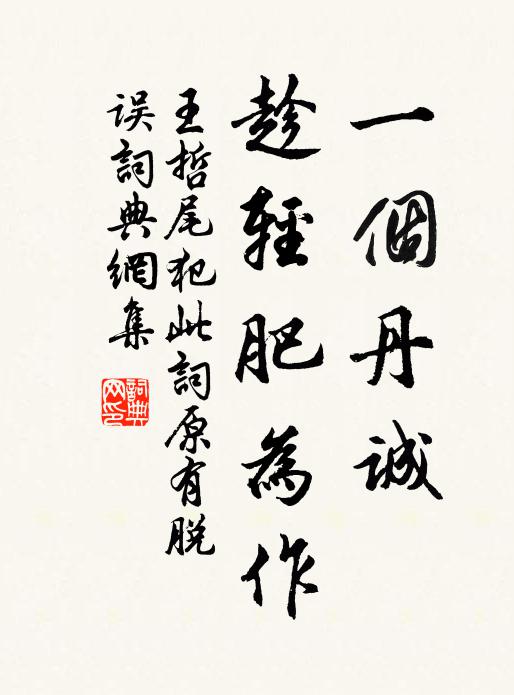 一個丹誠
趁輕肥為作
王哲尾犯此詞原有脱
误詞典網集
詞典
网印